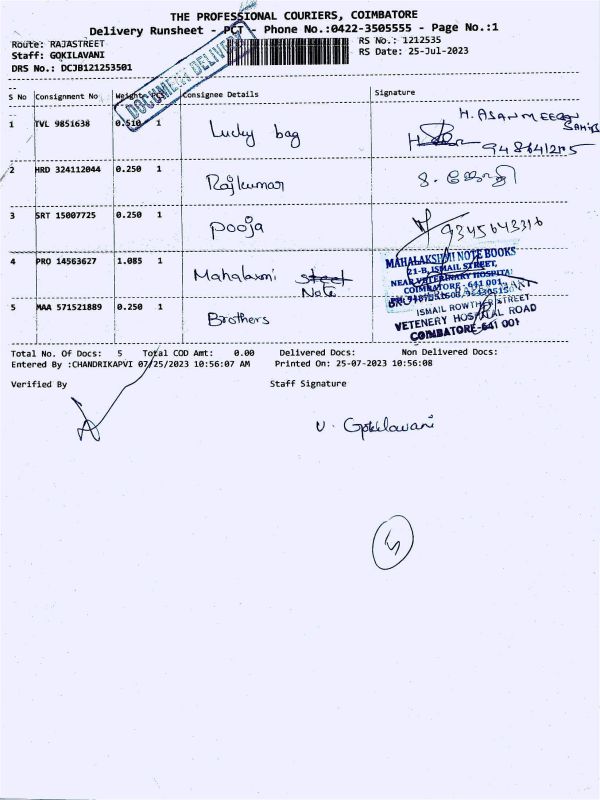 THE PROFESSIONAL COURIERS, COIMBATORE
Delivery Runsheet - PCT - Phone No.:0422-3505555 - Page No.:1
Route: RAJASTREET
RS No.: 1212535
Staff: GOKILAVANI
RS Date: 25-Jul-2023
DRS No.: DCJB121253501
DOCUMENT DELIVERY
S No Consignment No Weight PCS Consignee Details Signature
1 TVL 9851638 0.510 1 Lucky bag H. ASAN MEERAN SAHIB
2 HRD 324112044 0.250 1 Rajkumar
3 SRT 15007725 0.250 1 Pooja 9345643316
4 PRO 14563627 1.085 1 Mahalaxmi street Note
MAHALAKSHMI NOTE BOOKS
21-B, ISMAIL STREET,
NEAR VETERINARY HOSPITAL
COIMBATORE - 641 001
5 MAA 571521889 0.250 1 Brothers
ISMAIL ROWTHER STREET
VETENERY HOSPITAL ROAD
COIMBATORE-641 001
Total No. Of Docs: 5 Total COD Amt: 0.00 Delivered Docs: Non Delivered Docs:
Entered By :CHANDRIKAPVI 07/25/2023 10:56:07 AM Printed On: 25-07-2023 10:56:08
Verified By Staff Signature
V. Gokilavani
5